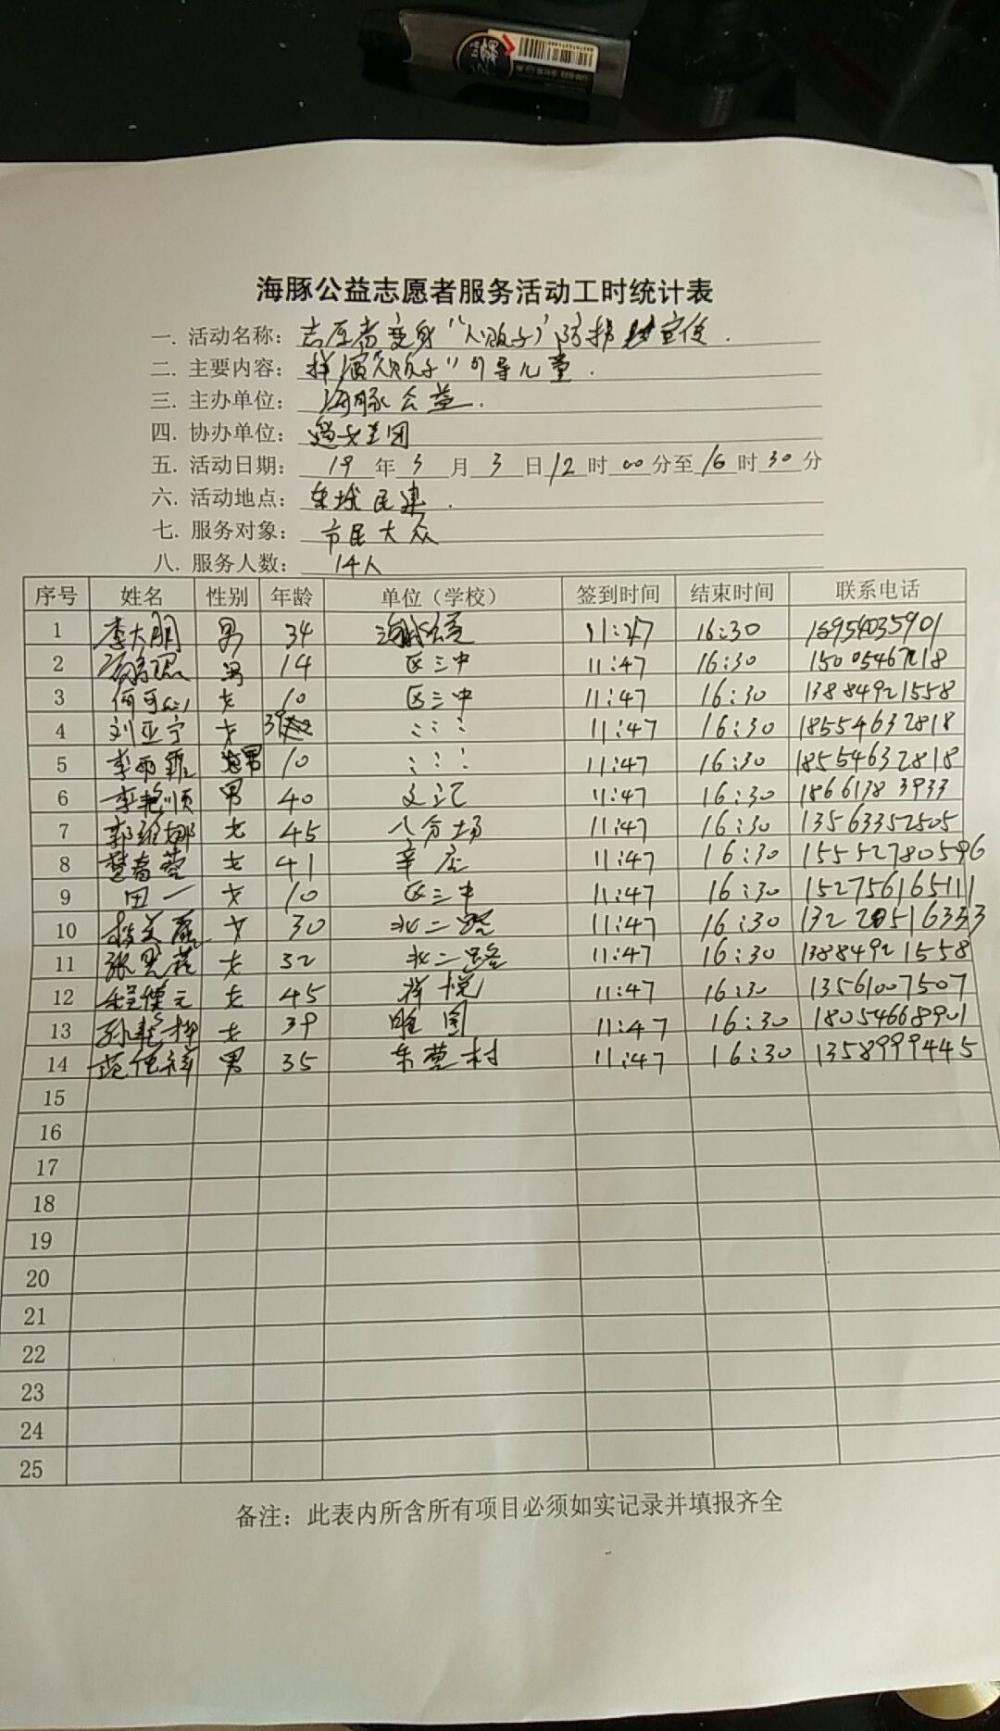 海豚公益志愿者服务活动工时统计表
一. 活动名称: 志愿者变身"人贩子"防拐宣传.
二. 主要内容: 扮演"人贩子"引导儿童.
三. 主办单位: 海豚公益.
四. 协办单位: 义工团
五. 活动日期: 19 年 3 月 3 日 12 时 00 分至 16 时 30 分
六. 活动地点: 东城民建.
七. 服务对象: 市民大众
八. 服务人数: 14人
序号 姓名 性别 年龄 单位（学校） 签到时间 结束时间 联系电话
1 李大朋 男 34 海豚公益 11:47 16:30 16954035901
2 男 14 区三中 11:47 16:30
3 何可 女 10 区三中 11:47 16:30 13884921558
4 刘亚宁 女 39 ::: 11:47 16:30 18554632818
5 李雨霏 男 10 ::: 11:47 16:30 18554632818
6 李艳顺 男 40 文汇 11:47 16:30 18661383933
7 郭维娜 女 45 八分场 11:47 16:30 13563352505
8 楚春蓉 女 41 辛店 11:47 16:30 15552780596
9 田一 女 10 区三中 11:47 16:30 152756165111
10 女 30 北二路 11:47 16:30
11 张 女 32 北二路 11:47 16:30 13884921558
12 程 元 女 45 祥悦 11:47 16:30 13561007507
13 孙艳 女 39 唯园 11:47 16:30 18054668901
14 范 祥 男 35 东营村 11:47 16:30 1358999445
15
16
17
18
19
20
21
22
23
24
25
备注: 此表内所含所有项目必须如实记录并填报齐全